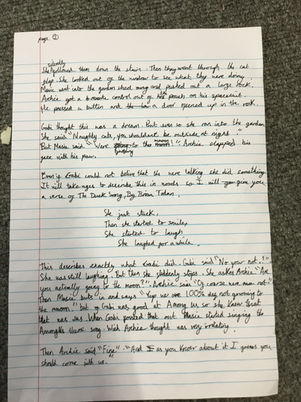 page ②
silently
She followed them down the stairs. Then they went through the cat
flap. She looked out of the window to see what they were doing.
Maisie went into the garden shed and pulled out a large rock.
Archie got a remote control out of his pouch on his spacesuit.
He pressed a button and the a door opened up in the rock.
Gabi thought this was a dream. But even so she ran into the garden.
She said "Naughty cats, you shouldn't be outside at night."
But Maisie said "We're going to the moon!" Archie slapped his
face with his paw.
Even Gabi could not believe that she were talking she did something
It will take ages to describe this in words so I will give you
a verse of The Duck Song, By Bryan Oden.
She just stuck,
Then she started to smile,
She started to laugh,
She laughed for a while.
This describes exactly what Gabi did. Gabi said "No your not!"
She was still laughing. But Then she suddenly stops. She asks Archie "Are
you actually going to the moon?!" Archie said "Of course were not!"
Then Maisie butts in and says "Yep we are 100% are not going to
the moon"
that was. When Gabi pointed that out Maisie started singing the
Amongus theme song. Which Archie thought was very irritating.
Then Archie said "Fine". "And as you know about it I guess you
should come with us."